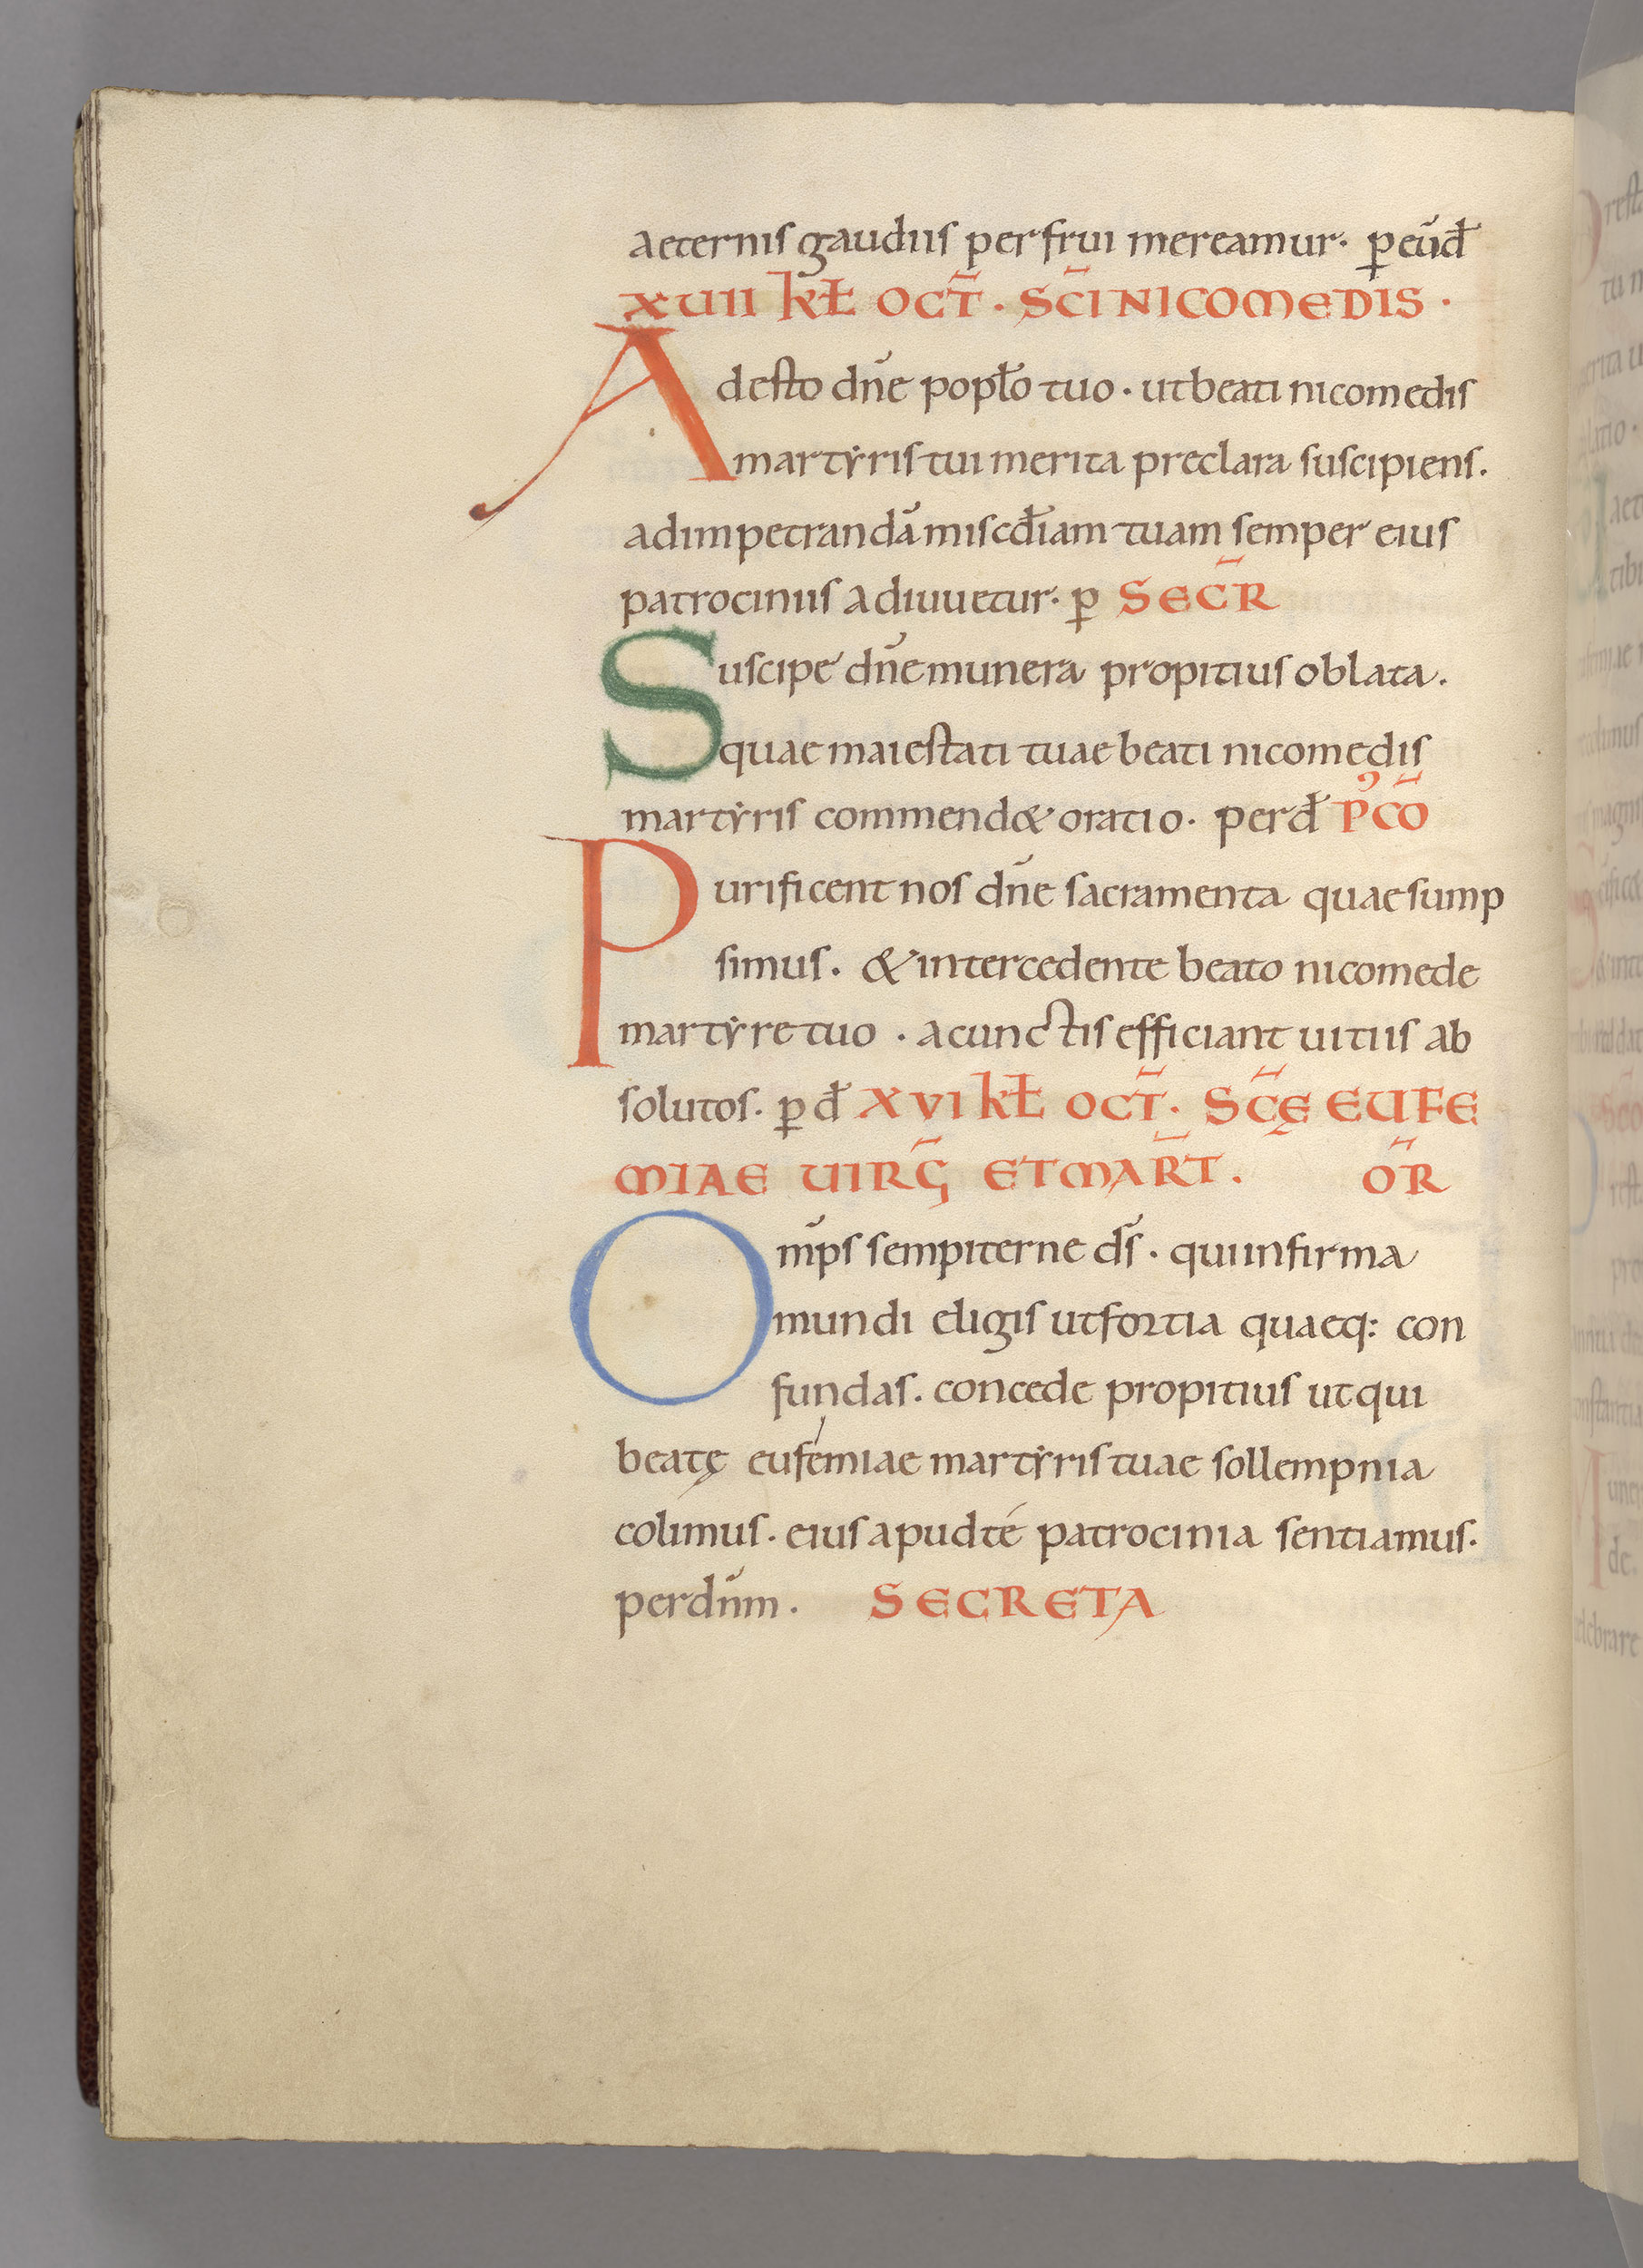 aeternis gaudiis perfrui mereamur. ꝑ eūđ
XVII kł OCT̄. SC̄I NICOMEDIS.
Adesto dn̄e popło tuo. ut beati nicomedis
martẏris tui merita preclara suscipiens.
ad impetrandā miscđiam tuam semper eius
patrociniis adiuuetur. ꝑ SECR̄
Suscipe dn̄e munera propitius oblata.
quae maiestati tuae beati nicomedis
martẏris commend& oratio. perđ P᾿CŌ
Purificent nos dn̄e sacramenta quae sump
simus. & intercedente beato nicomede
martẏre tuo. a cunctis efficiant uitiis ab
solutos. ꝑ đ XVI kł OCT̄. SC̄Ę EUFE
MIAE UIRḠ ET MART̄. OR̄
Om̄ps sempiterne ds̄. qui infirma
mundi eligis ut fortia quaeq: con
fundas. concede propitius ut qui
beatę eufémiae martẏris tuae sollempnia
colimus. eius apud té patrocinia sentiamus.
per dn̄m. SECRETA